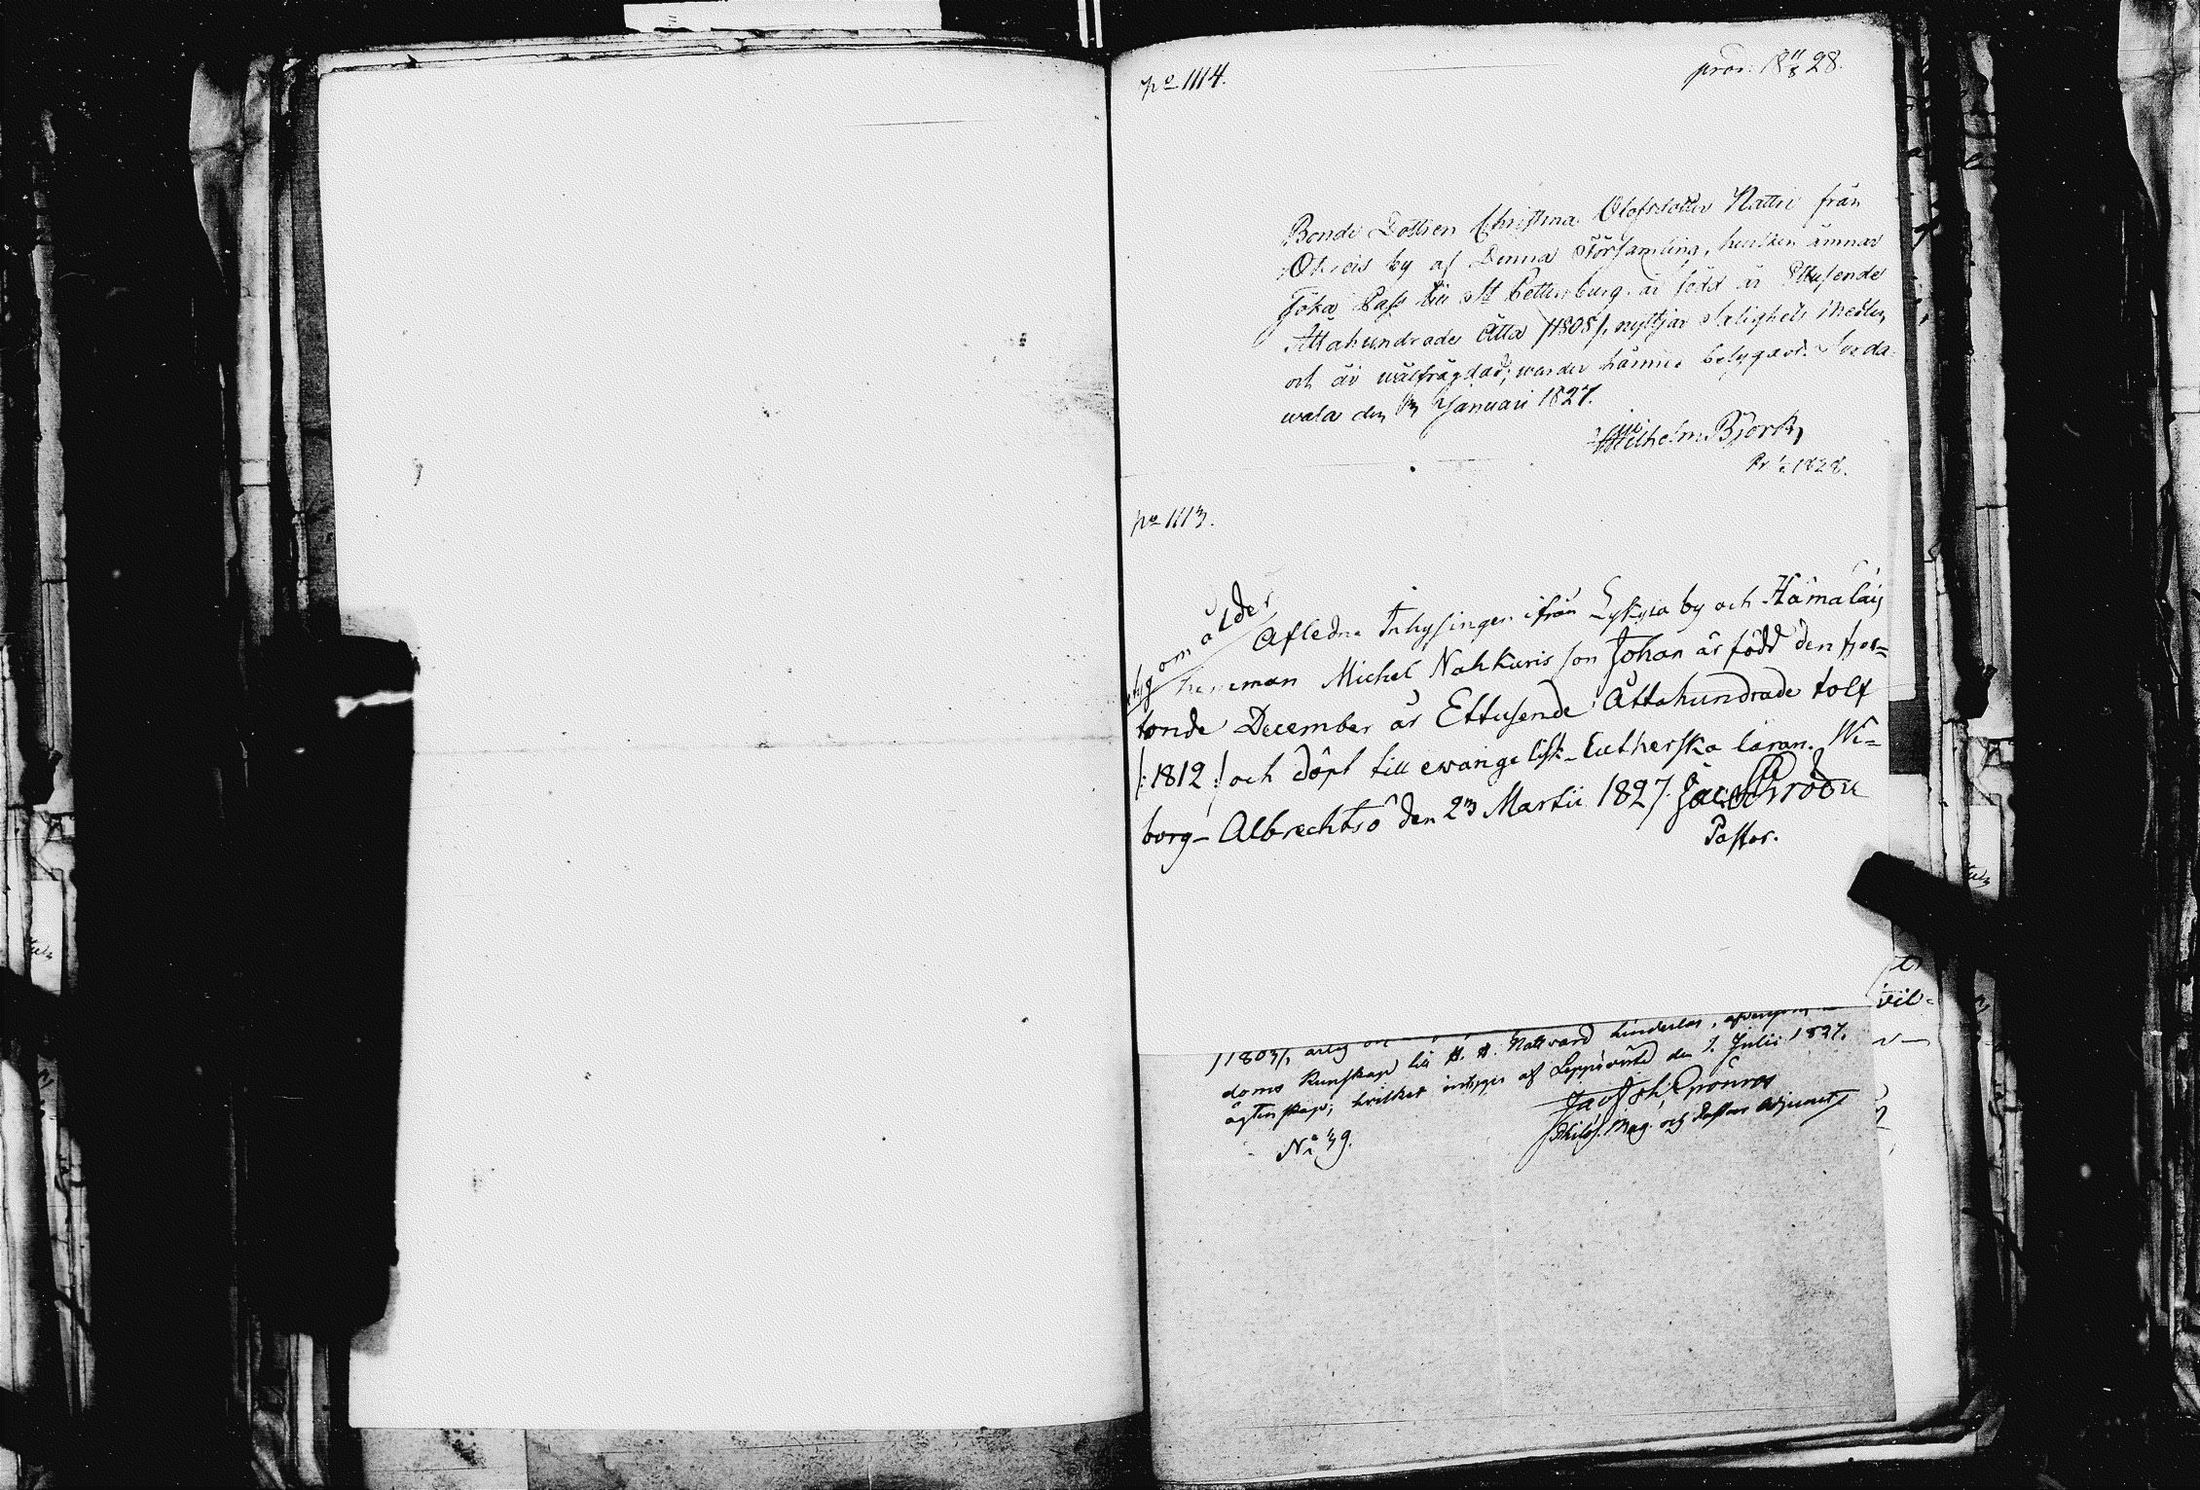 no 1114.
prod: 18 11/8 28.
Bonde Dottren Christina Olofsdotter Nattri från
by af Denna Församling, hvilken ämnar
söka Pass till St Pettersburg, är född år Ettusende
Åttahundrade Åtta /1808/, nyttjar Salighets Medlen
och är wälfrägdad; warder härmed betygadt. Sorda-
wala den Januari 1827.
Wilhelm Björk
1828.
no 1113.
Afledne Inhysingen ifrån Lykyla by och Hämäläis
hemman Michel Nahkuris son Johan är född den fjor=
tonde December år Ettusende Åttahundrade tolf
/:1812:/ och döpt till evangelisk-Lutherska läran. Wi=
borg- Albrechtsö den 23 Martii 1827. Jac
Pastor.
om ålder
/1803/, ärlig
doms Kunskap till H. H. Nattvard hinderlös,
ägtenskap; hvilket intygas af Leppävirta den 1. Julii 1827.
No 39.
Philos. Mag. och Pastors Adjunct